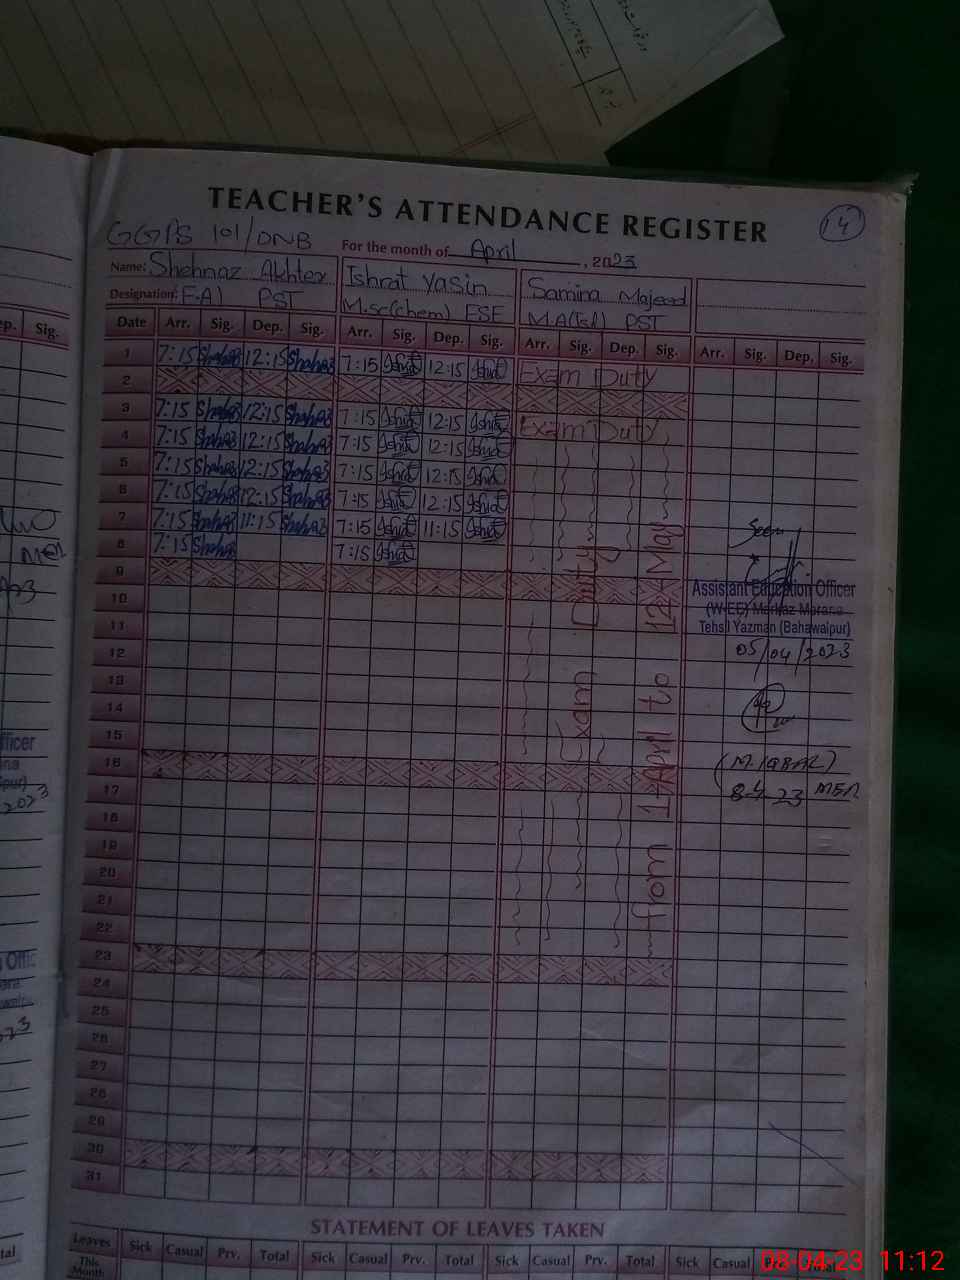 TEACHER'S ATTENDANCE REGISTER
14
GGPS 101/DNB
For the month of April, 2023
Name: Shehnaz Akhter
Ishrat Yasin
Samina Majeed
Designation: F.A PST
M.sc(chem) ESE
M.A(Isl) PST
Date Arr. Sig. Dep. Sig. Arr. Sig. Dep. Sig. Arr. Sig. Dep. Sig. Arr. Sig. Dep. Sig.
1 7:15 Shahnaz 12:15 Shahnaz 7:15 Ishrat 12:15 Ishrat Exam Duty
2
3 7:15 Shahnaz 12:15 Shahnaz 7:15 Ishrat 12:15 Ishrat Exam Duty
4 7:15 Shahnaz 12:15 Shahnaz 7:15 Ishrat 12:15 Ishrat
5 7:15 Shahnaz 12:15 Shahnaz 7:15 Ishrat 12:15 Ishrat
6 7:15 Shahnaz 12:15 Shahnaz 7:15 Ishrat 12:15 Ishrat
7 7:15 Shahnaz 11:15 Shahnaz 7:15 Ishrat 11:15 Ishrat
8 7:15 Shahnaz 7:15 Ishrat
9
10
11
12
13
14
15
16
17
18
19
20
21
22
23
24
25
26
27
28
29
30
31
Exam Duty
from 1-April to 12-May
Seen
Assistant Education Officer
(W-EE) Markaz Marana
Tehsil Yazman (Bahawalpur)
05/04/2023
(M. IQBAL)
8-4-23 MEA
STATEMENT OF LEAVES TAKEN
Leaves Sick Casual Prv. Total Sick Casual Prv. Total Sick Casual Prv. Total Sick Casual
This Month
ep. Sig.
fficer
2023
08-04-23 11:12